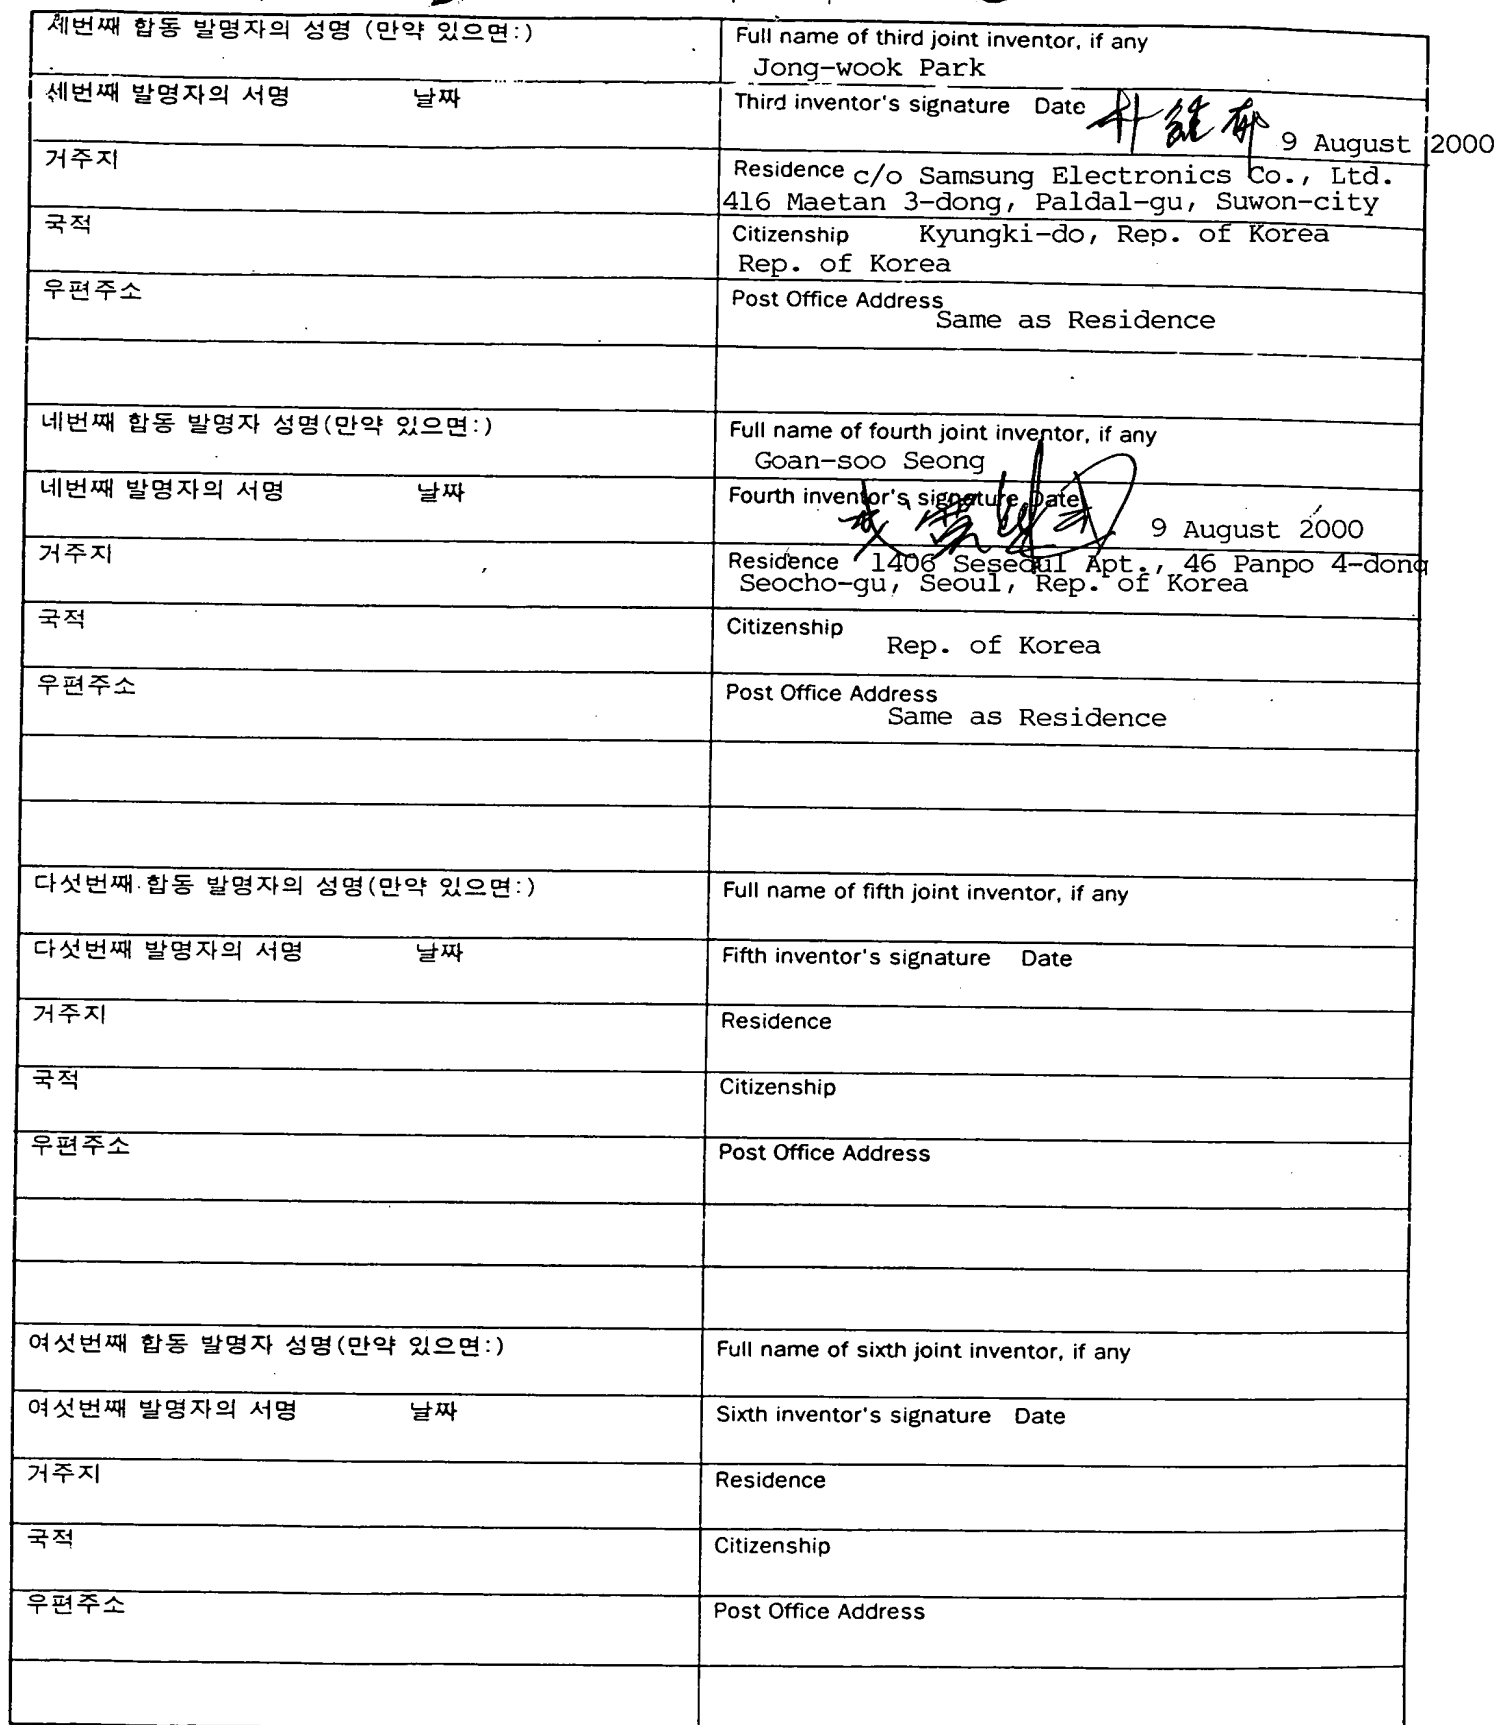 세번째 합동 발명자의 성명 (만약 있으면:)
Full name of third joint inventor, if any
Jong-wook Park
세번째 발명자의 서명 날짜
Third inventor's signature Date
9 August 2000
거주지
Residence c/o Samsung Electronics Co., Ltd.
416 Maetan 3-dong, Paldal-gu, Suwon-city
국적
Citizenship Kyungki-do, Rep. of Korea
Rep. of Korea
우편주소
Post Office Address
Same as Residence
네번째 합동 발명자 성명(만약 있으면:)
Full name of fourth joint inventor, if any
Goan-soo Seong
네번째 발명자의 서명 날짜
Fourth inventor's signature Date
9 August 2000
거주지
Residence 1406 Apt., 46 Panpo 4-dong
Seocho-gu, Seoul, Rep. of Korea
국적
Citizenship
Rep. of Korea
우편주소
Post Office Address
Same as Residence
다섯번째 합동 발명자의 성명(만약 있으면:)
Full name of fifth joint inventor, if any
다섯번째 발명자의 서명 날짜
Fifth inventor's signature Date
거주지
Residence
국적
Citizenship
우편주소
Post Office Address
여섯번째 합동 발명자 성명(만약 있으면:)
Full name of sixth joint inventor, if any
여섯번째 발명자의 서명 날짜
Sixth inventor's signature Date
거주지
Residence
국적
Citizenship
우편주소
Post Office Address